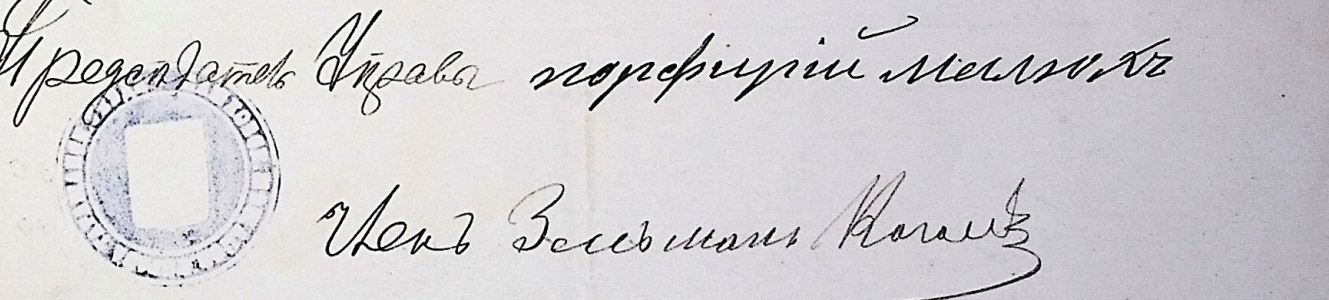 Председатель Управы порфирій мелюхъ
Членъ Зельманъ Коганъ